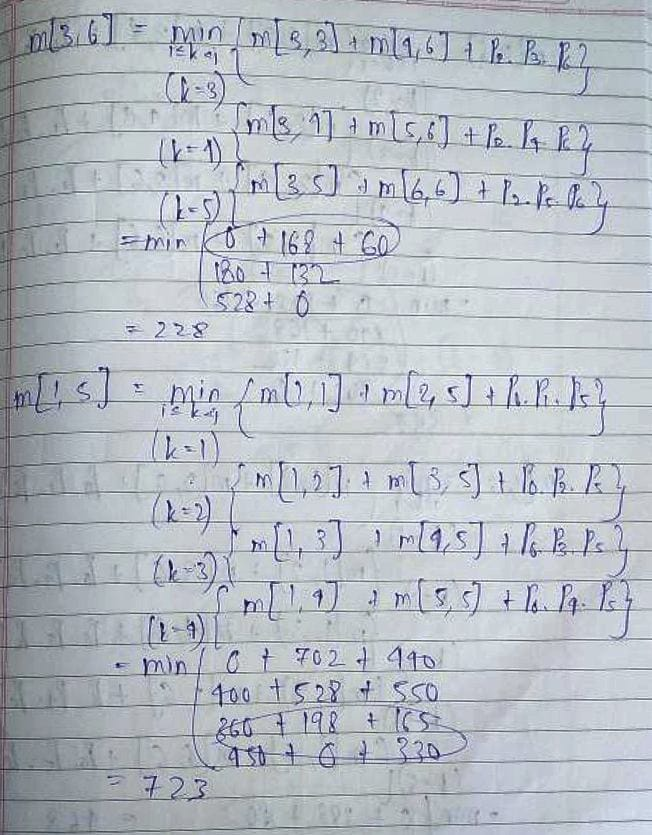 m[3,6] = min i≤k<j { m[3,3] + m[4,6] + P2. P3. P6 }
(k=3)
{ m[3,4] + m[5,6] + P2. P4. P6 }
(k=4)
{ m[3,5] + m[6,6] + P2. P5. P6 }
(k=5)
= min { 0 + 168 + 60
180 + 132
528 + 0
= 228
m[1,5] = min i≤k<j { m[1,1] + m[2,5] + P0. P1. P5 }
(k=1)
{ m[1,2] + m[3,5] + P0. P2. P5 }
(k=2)
{ m[1,3] + m[4,5] + P0. P3. P5 }
(k=3)
{ m[1,4] + m[5,5] + P0. P4. P5 }
(k=4)
= min { 0 + 702 + 440
400 + 528 + 550
360 + 198 + 165
450 + 0 + 330
= 723